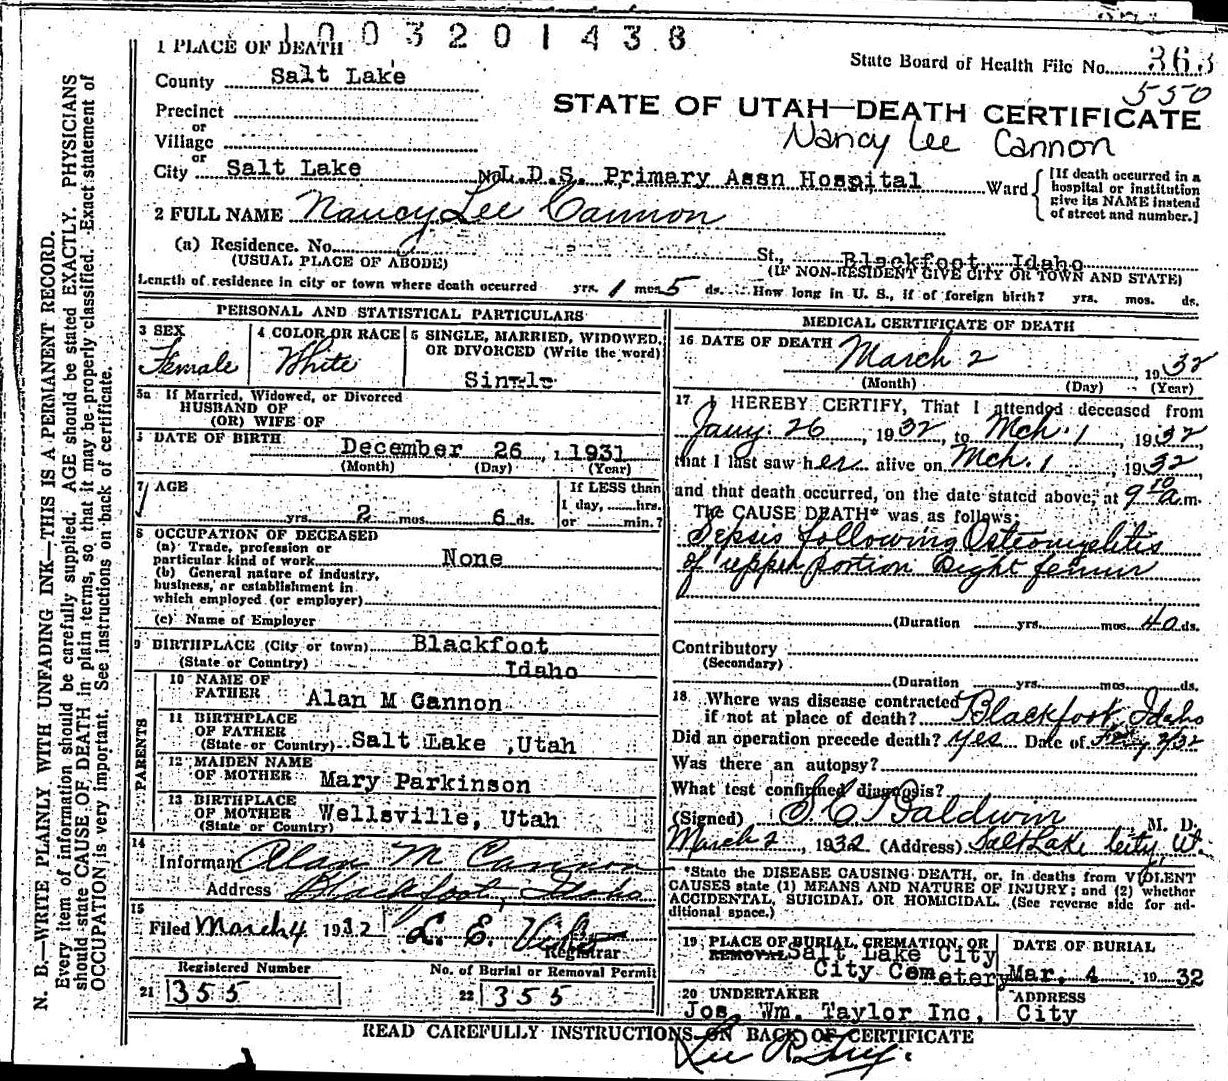 1003201438
1 PLACE OF DEATH
State Board of Health File No. 363
County Salt Lake
550
STATE OF UTAH—DEATH CERTIFICATE
Precinct
or
Village
Nancy Lee Cannon
or
City Salt Lake No. L.D.S. Primary Assn Hospital Ward
[If death occurred in a
hospital or institution
give its NAME instead
of street and number.]
2 FULL NAME Nancy Lee Cannon
(a) Residence. No. St., Blackfoot, Idaho
(USUAL PLACE OF ABODE) (IF NON-RESIDENT GIVE CITY OR TOWN AND STATE)
Length of residence in city or town where death occurred yrs. 1 mos. 5 ds. How long in U. S., if of foreign birth? yrs. mos. ds.
PERSONAL AND STATISTICAL PARTICULARS
3 SEX 4 COLOR OR RACE 5 SINGLE, MARRIED, WIDOWED,
OR DIVORCED (Write the word)
Female White Single
5a If Married, Widowed, or Divorced
HUSBAND OF
(OR) WIFE OF
DATE OF BIRTH
December 26, 1931
(Month) (Day) (Year)
7 AGE If LESS than
1 day, hrs.
yrs. 2 mos. 6 ds. or min.?
8 OCCUPATION OF DECEASED
(a) Trade, profession or
particular kind of work None
(b) General nature of industry,
business, or establishment in
which employed (or employer)
(c) Name of Employer
9 BIRTHPLACE (City or town) Blackfoot
(State or Country) Idaho
PARENTS
10 NAME OF
FATHER Alan M Cannon
11 BIRTHPLACE
OF FATHER
(State or Country) Salt Lake ,Utah
12 MAIDEN NAME
OF MOTHER Mary Parkinson
13 BIRTHPLACE
OF MOTHER Wellsville, Utah
(State or Country)
14
Informant Alan M Cannon
Address Blackfoot, Idaho
15
Filed March 4 1932 L. E.
Registrar
Registered Number No. of Burial or Removal Permit
21 355 22 355
MEDICAL CERTIFICATE OF DEATH
16 DATE OF DEATH March 2 1932
(Month) (Day) (Year)
17 I HEREBY CERTIFY, That I attended deceased from
Jany. 26, 1932, to Mch. 1, 1932
that I last saw her alive on Mch. 1 1932
and that death occurred, on the date stated above, at 9 10 a.m.
The CAUSE DEATH* was as follows:
Sepsis following Osteomyelitis
of upper portion Right femur
(Duration yrs. mos. 40 ds.
Contributory
(Secondary)
(Duration yrs. mos. ds.
18 Where was disease contracted
if not at place of death? Blackfoot, Idaho
Did an operation precede death? yes Date of
Was there an autopsy?
What test confirmed diagnosis?
(Signed) S C Baldwin M. D.
March 2, 1932 (Address) Salt Lake City Ut.
*State the DISEASE CAUSING DEATH, or, in deaths from VIOLENT
CAUSES state (1) MEANS AND NATURE OF INJURY; and (2) whether
ACCIDENTAL, SUICIDAL OR HOMICIDAL. (See reverse side for ad-
ditional space.)
19 PLACE OF BURIAL, CREMATION, OR DATE OF BURIAL
REMOVAL Salt Lake City
City Cemetery Mar. 4 1932
20 UNDERTAKER ADDRESS
Jos. Wm. Taylor Inc. City
READ CAREFULLY INSTRUCTIONS ON BACK OF CERTIFICATE
N. B.—WRITE PLAINLY WITH UNFADING INK—THIS IS A PERMANENT RECORD.
Every item of information should be carefully supplied. AGE should be stated EXACTLY. PHYSICIANS
should state CAUSE OF DEATH in plain terms, so that it may be properly classified. Exact statement of
OCCUPATION is very important. See instructions on back of certificate.